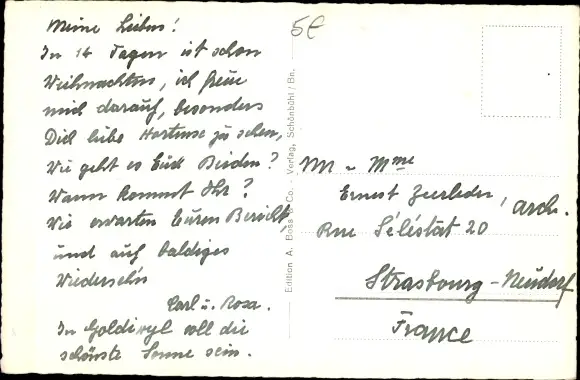 Meine Lieben!
In 14 Tagen ist schon
Weihnachten, ich freue
mich darauf, besonders
Dich liebe Hortense zu sehen,
Wie geht es Euch Beiden?
Wann kommt Ihr?
Wir erwarten Euren Bericht,
und auf baldiges
Wiedersehn
Carl u. Rosa.
In Goldiwyl soll die
schönste Sonne sein.
5€
Edition A. Boss & Co. - Verlag, Schönbühl / Bn.
Mr - Mme
Ernest Zeerleder, arch.
Rue Séléstat 20
Strasbourg - Neudorf
France